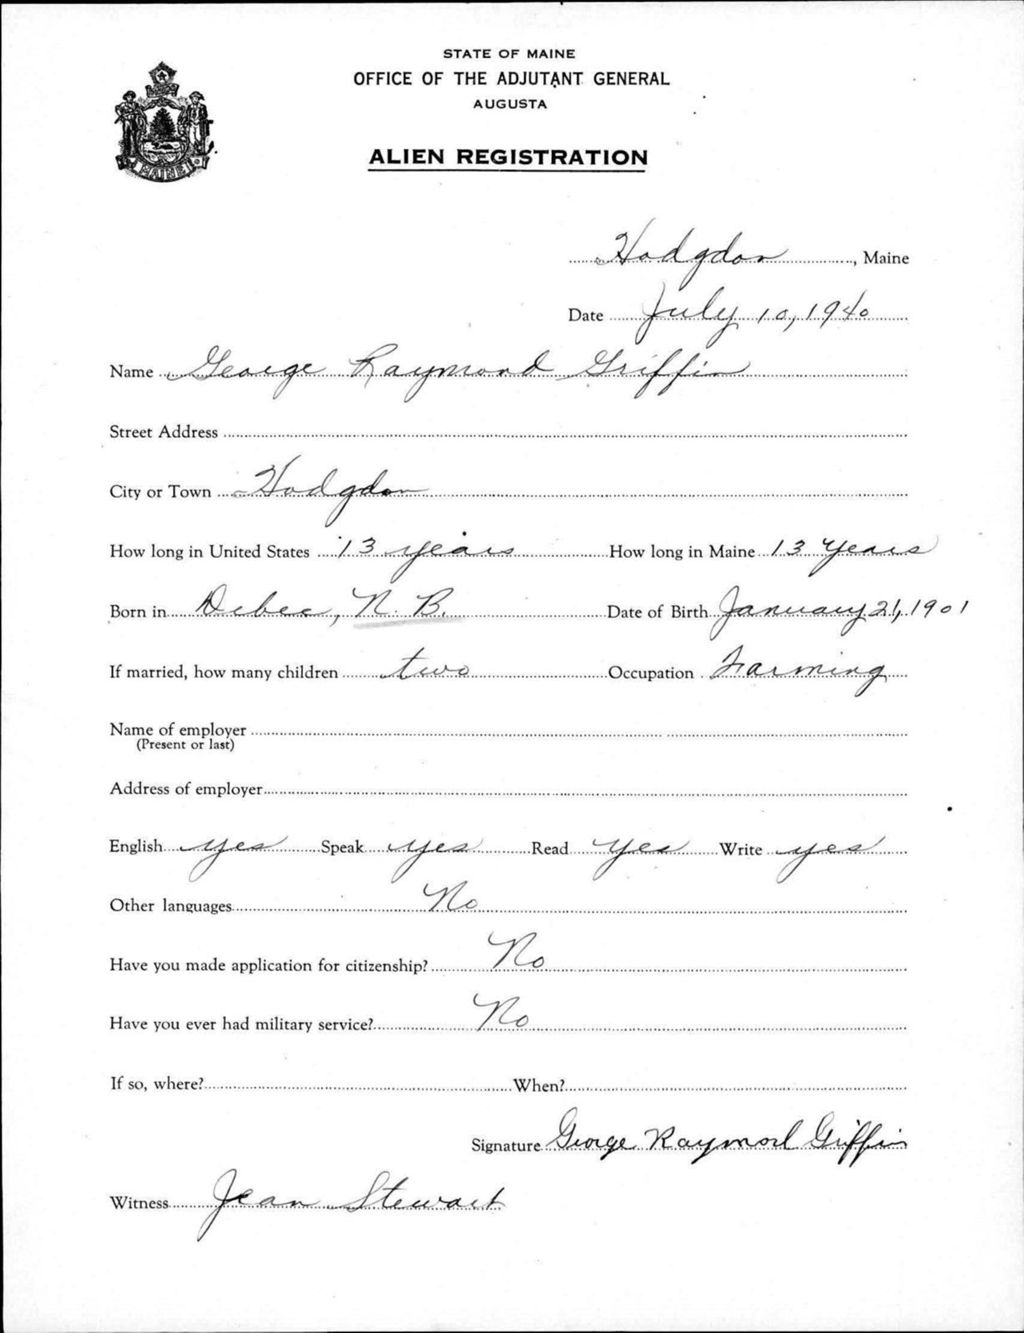 STATE OF MAINE
OFFICE OF THE ADJUTANT GENERAL
AUGUSTA
ALIEN REGISTRATION
MAINE
Hodgdon, Maine
Date July 10, 1940
Name George Raymond Griffin
Street Address
City or Town Hodgdon
How long in United States 13 years How long in Maine 13 Years
Born in Debec, N. B. Date of Birth January 21, 1901
If married, how many children two Occupation Farming
Name of employer
(Present or last)
Address of employer
English yes Speak yes Read Yes Write yes
Other languages No
Have you made application for citizenship? No
Have you ever had military service? No
If so, where? When?
Signature George Raymond Griffin
Witness Jean Stewart